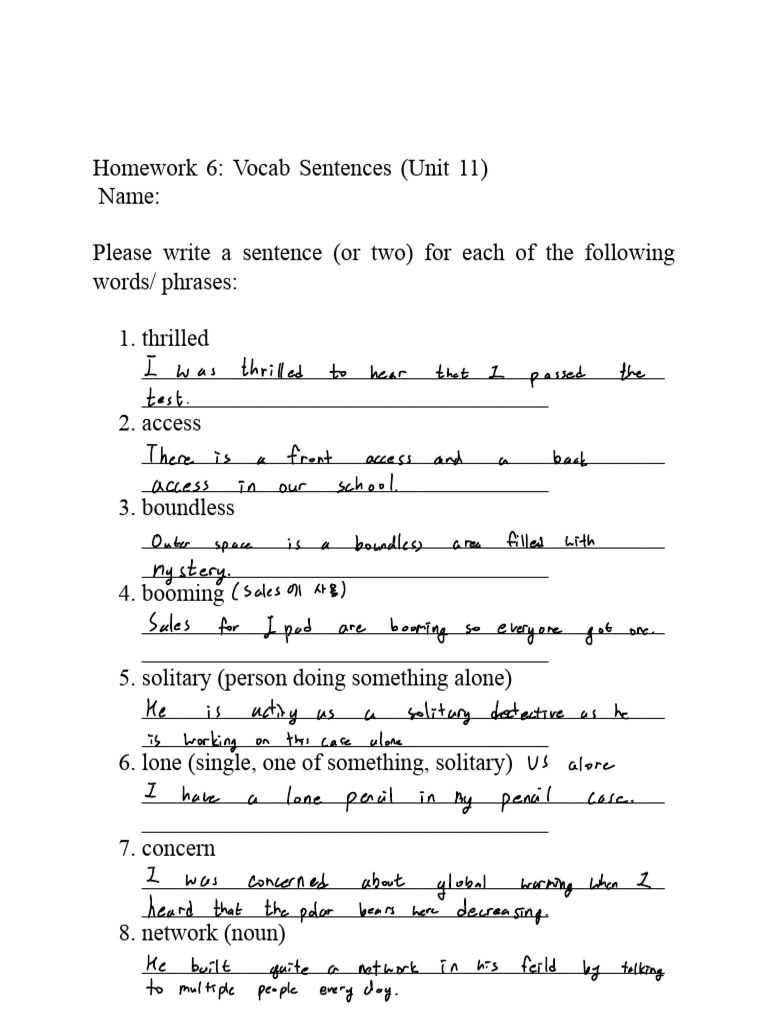 Homework 6: Vocab Sentences (Unit 11)
Name:
Please write a sentence (or two) for each of the following
words/ phrases:
1. thrilled
I was thrilled to hear that I passed the
test.
2. access
There is a front access and a back
access in our school.
3. boundless
Outer space is a boundless area filled with
mystery.
4. booming (Sales에 사용)
Sales for Ipad are booming so everyone got one.
5. solitary (person doing something alone)
He is acting as a solitary detective as he
is working on this case alone
6. lone (single, one of something, solitary) VS alone
I have a lone pencil in my pencil case.
7. concern
I was concerned about global warming when I
heard that the polar bears here decreasing.
8. network (noun)
He built quite a network in his feild by talking
to multiple people every day.